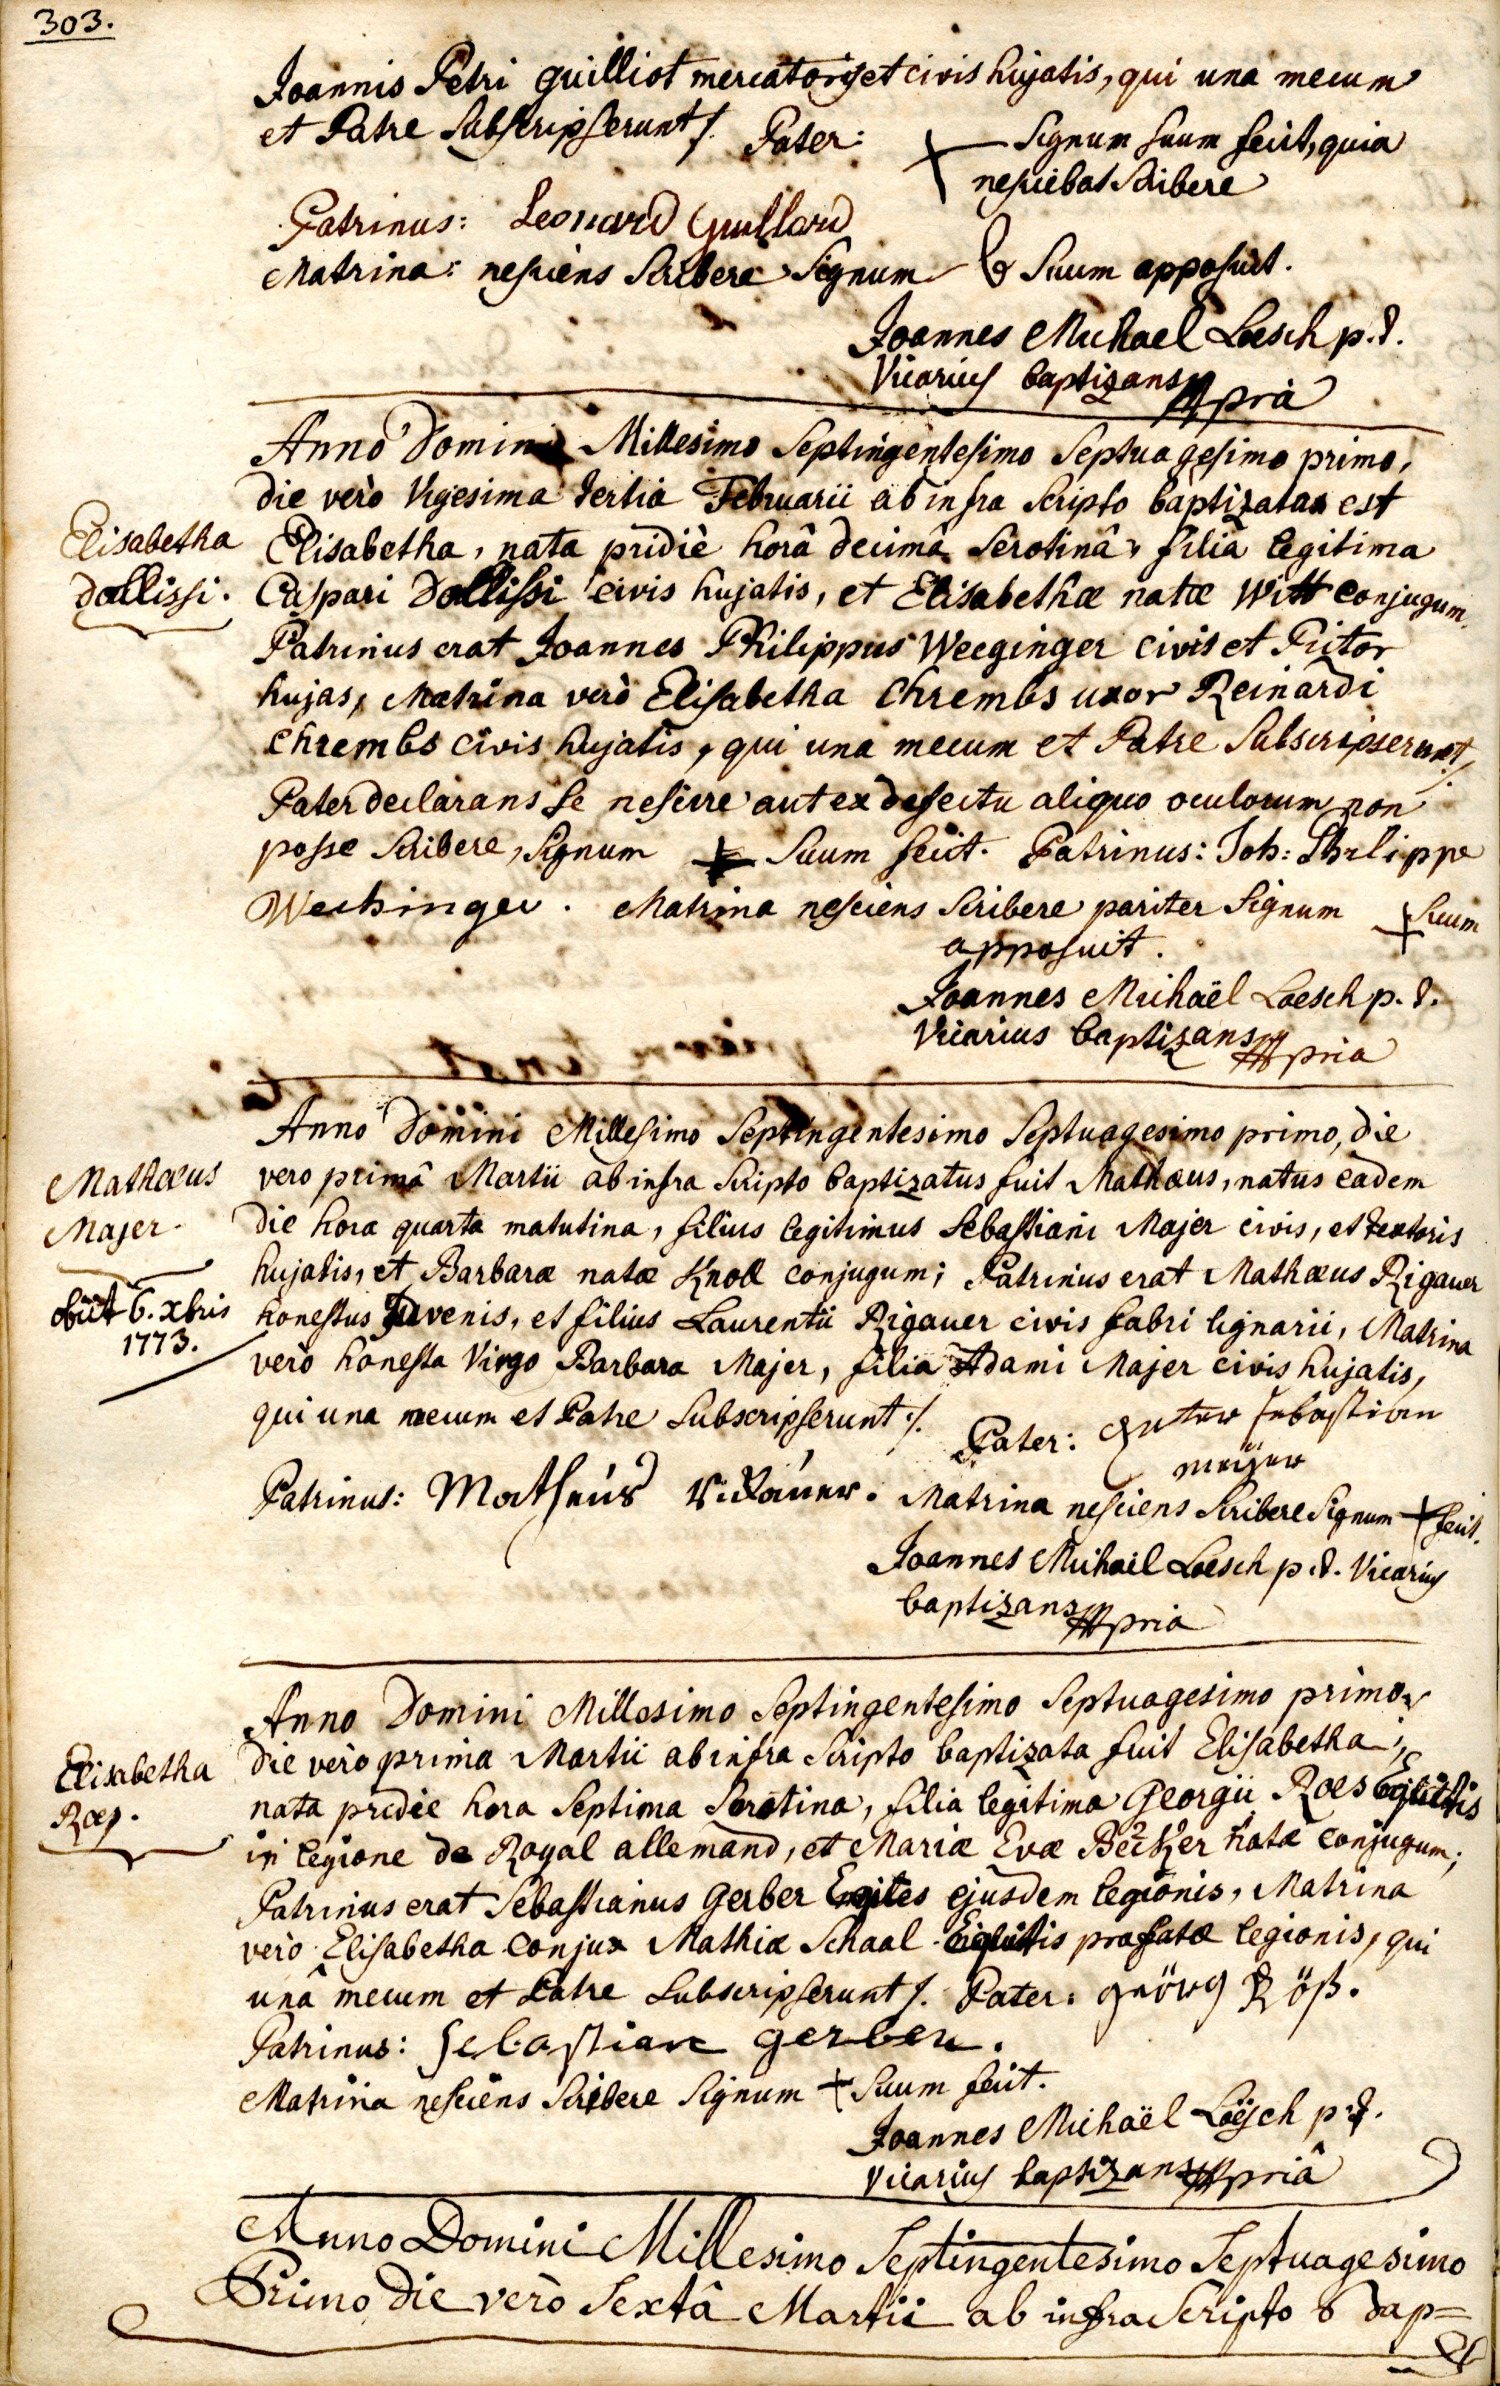 303.
Joannis Petri Guilliot mercatoris et civis hujatis, qui una mecum
et Patre Subscripserunt /. Pater: Signum suum fecit, quia
nesciebat Scribere
Patrinus: Leonard Guillard
Matrina: nesciens Scribere Signum Suum apposuit.
Joannes Michael Loesch p.t.
Vicarius baptizans mpria
Anno Domini Millesimo Septingentesimo Septuagesimo primo,
die verò Vigesima tertia Februarii ab infra Scripto baptizata est
Elisabetha
Dallissi.
Elisabetha, nata pridiè horâ decimâ Serotinâ, filia legitima
Caspari Dallissi civis hujatis, et Elisabethæ natæ Witt conjugum.
Patrinus erat Joannes Philippus Weeginger civis et Pictor
hujas, Matrina verò Elisabetha Chrembs uxor Reinardi
Chrembs civis hujatis, qui una mecum et Patre Subscripserunt /.
Pater declarans Se nescire aut ex defectu aliquo oculorum non
posse Scribere, Signum + Suum fecit. Patrinus: Joh: Philippe
Wechinger. Matrina nesciens Scribere pariter Signum + Suum
apposuit.
Joannes Michaël Loesch p.t.
Vicarius baptizans mpria
Anno Domini Millesimo Septingentesimo Septuagesimo primo, die
Mathæus
Majer.
obiit 6. xbris
1773.
vero primâ Martii ab infra Scripto baptizatus fuit Mathæus, natus eadem
die hora quarta matutina, filius legitimus Sebastiani Majer civis, et textoris
hujatis, et Barbaræ natæ Knoll conjugum; Patrinus erat Mathæus Rigauer
honestus Juvenis, et filius Laurentii Rigauer civis fabri lignarii, Matrina
verò honesta Virgo Barbara Majer, filia Adami Majer civis hujatis,
qui una mecum et Patre Subscripserunt /. Pater: Sebastian
meijer
Patrinus: Matheus Rickauer. Matrina nesciens Scribere Signum + fecit.
Joannes Michael Loesch p.t. Vicarius
baptizans mpria
Anno Domini Millesimo Septingentesimo Septuagesimo primo,
Elisabetha
Roes.
die verò prima Martii ab infra Scripto baptizata fuit Elisabetha,
nata pridie hora Septima Serotina, filia legitima Georgii Roes Equitis
in legione de Royal allemand, et Mariæ Evæ Becker natæ conjugum;
Patrinus erat Sebastianus Gerber Eques ejusdem legionis, Matrina
verò Elisabetha conjux Mathiæ Schaal Equitis præfatæ legionis, qui
unâ mecum et Patre Subscripserunt /. Pater: Geörg Röß.
Patrinus: Sebastian gerber.
Matrina nesciens Scribere Signum + Suum fecit.
Joannes Michaël Loësch p.t.
Vicarius baptizans mpriâ
Anno Domini Millesimo Septingentesimo Septuagesimo
Primo die verò Sextâ Martii ab infra Scripto bap=